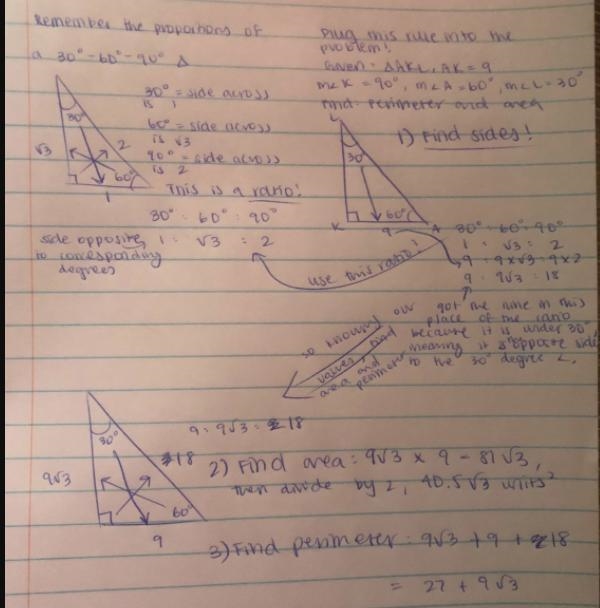 Remember the proportions of
a 30° - 60° - 90° Δ
30° = side across
is 1
60° = side across
is √3
90° = side across
is 2
30°
√3
2
60°
1
This is a ratio!
30° : 60° : 90°
side opposite 1 : √3 : 2
to corresponding
degrees
Plug this rule into the
problem!
Given: ΔAKL, AK = 9
m∠K = 90°, m∠A = 60°, m∠L = 30°
Find: Perimeter and area
1) Find sides!
L
30°
60°
K
9
A
30° : 60° : 90°
1 : √3 : 2
9 : 9×√3 : 9×2
9 : 9√3 : 18
use this ratio!
got the nine in this
place of the ratio
because it is under 30°
meaning it is opposite side
to the 30° degree ∠.
so knowing our
values, find
area and
perimeter
9 : 9√3 : 18
30°
18
9√3
60°
9
2) Find area: 9√3 × 9 = 81√3,
then divide by 2, 40.5√3 units²
3) Find perimeter: 9√3 + 9 + 18
= 27 + 9√3